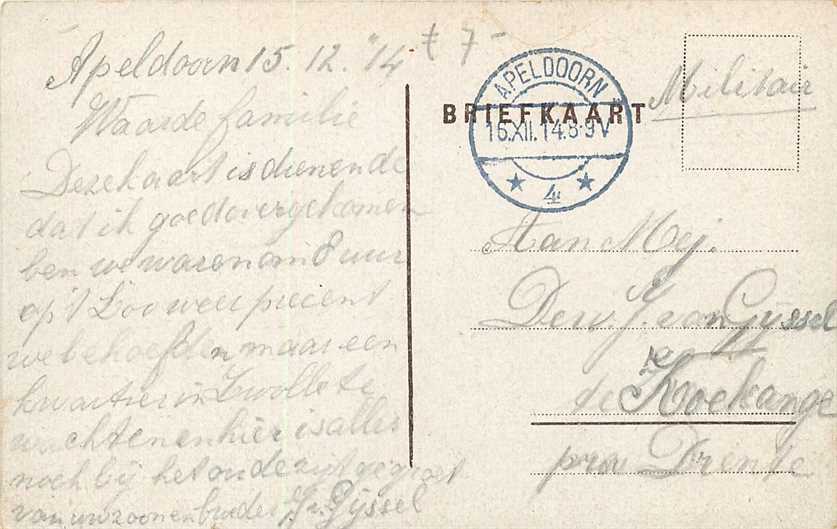 Apeldoorn 15.12.'14
t 7-
Waarde familie
Deze kaart is dienende
dat ik goed overgekomen
ben we waren om 8 uur
op 't Loo weer precent
we behoefden maar een
kwartier in Zwolle te
wachten en hier is alles
noch bij het oude zijt gegroet
van uw zoon en broeder J. v. Gijssel
BRIEFKAART
APELDOORN
15.XII.14.8-9V
4
Militair
Aan Mej.
Dew. J. van Gijssel
te Koekange
prov Drente